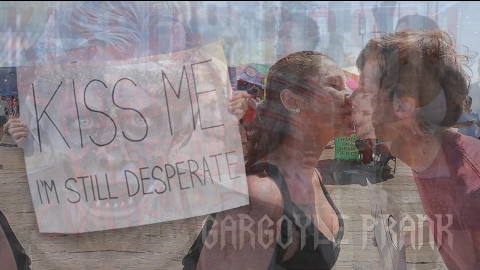 KISS ME
I'M STILL DESPERATE
GARGOYLE PRANK